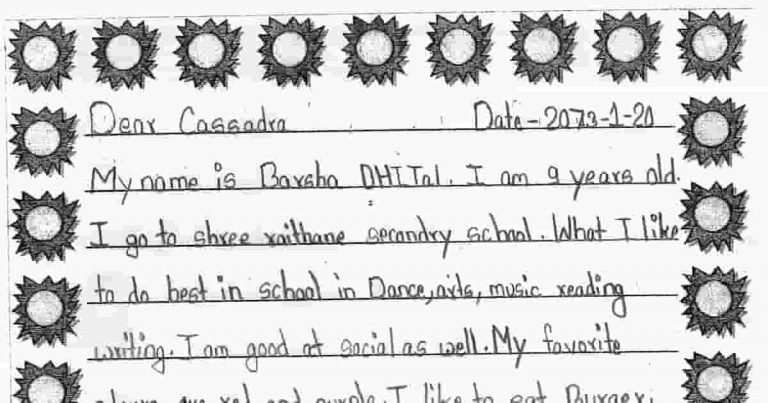 Dear Cassadra Date-2073-1-20
My name is Barsha DHITal. I am 9 years old.
I go to shree raithane secondry school. What I like
to do best in school in Dance, arts, music reading
writing. I am good at social as well. My favorite
are red and purple. I like to eat Burger,